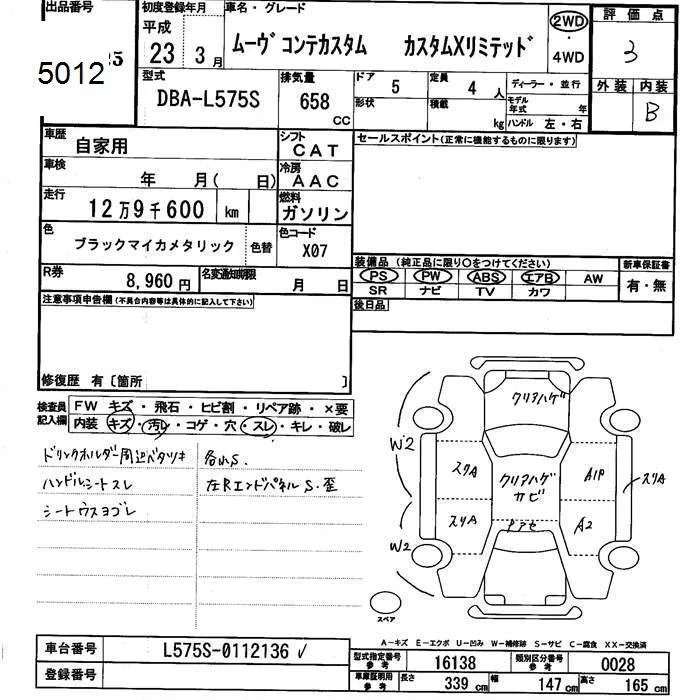 出品番号 初度登録年月 車名・グレード 評価点
5012 5 平成 23 3月 ムーヴ コンテカスタム カスタムXリミテッド 2WD ・ 4WD 3
型式 DBA-L575S 排気量 658 CC ドア 5 定員 4人 ディーラー・並行 外装 内装
形状 積載 kg モデル年式 年 ハンドル 左・右 B
車歴 自家用 シフト CAT セールスポイント(正常に機能するものに限ります)
車検 年 月( 日) 冷房 AAC
走行 12万9千600 km 燃料 ガソリン
色 ブラックマイカメタリック 色替 色コード X07
装備品(純正品に限り○をつけてください) 新車保証書
R券 8,960円 名変通知期限 月 日 PS PW ABS エアB AW 有・無
SR ナビ TV カワ
注意事項申告欄(不具合内容等は具体的に記入して下さい) 後日品
修復歴 有〔箇所 〕
検査員記入欄 FW キズ・飛石・ヒビ割・リペア跡・×要
内装 キズ・汚レ・コゲ・穴・スレ・キレ・破レ
ドリンクホルダー周辺ベタツキ 各小S.
ハンドルシートスレ 左Rエンドパネル S・歪
シートウスヨゴレ
クリアハゲ
W2
スリA クリアハゲ サビ A1P スリA
スリA A2
W2
スペア
A-キズ E-エクボ U-凹み W-補修跡 S-サビ C-腐食 XX-交換済
車台番号 L575S-0112136 型式指定番号 参考 16138 類別区分番号 参考 0028
登録番号 車庫証明用 参考 長さ 339 cm 幅 147 cm 高さ 165 cm